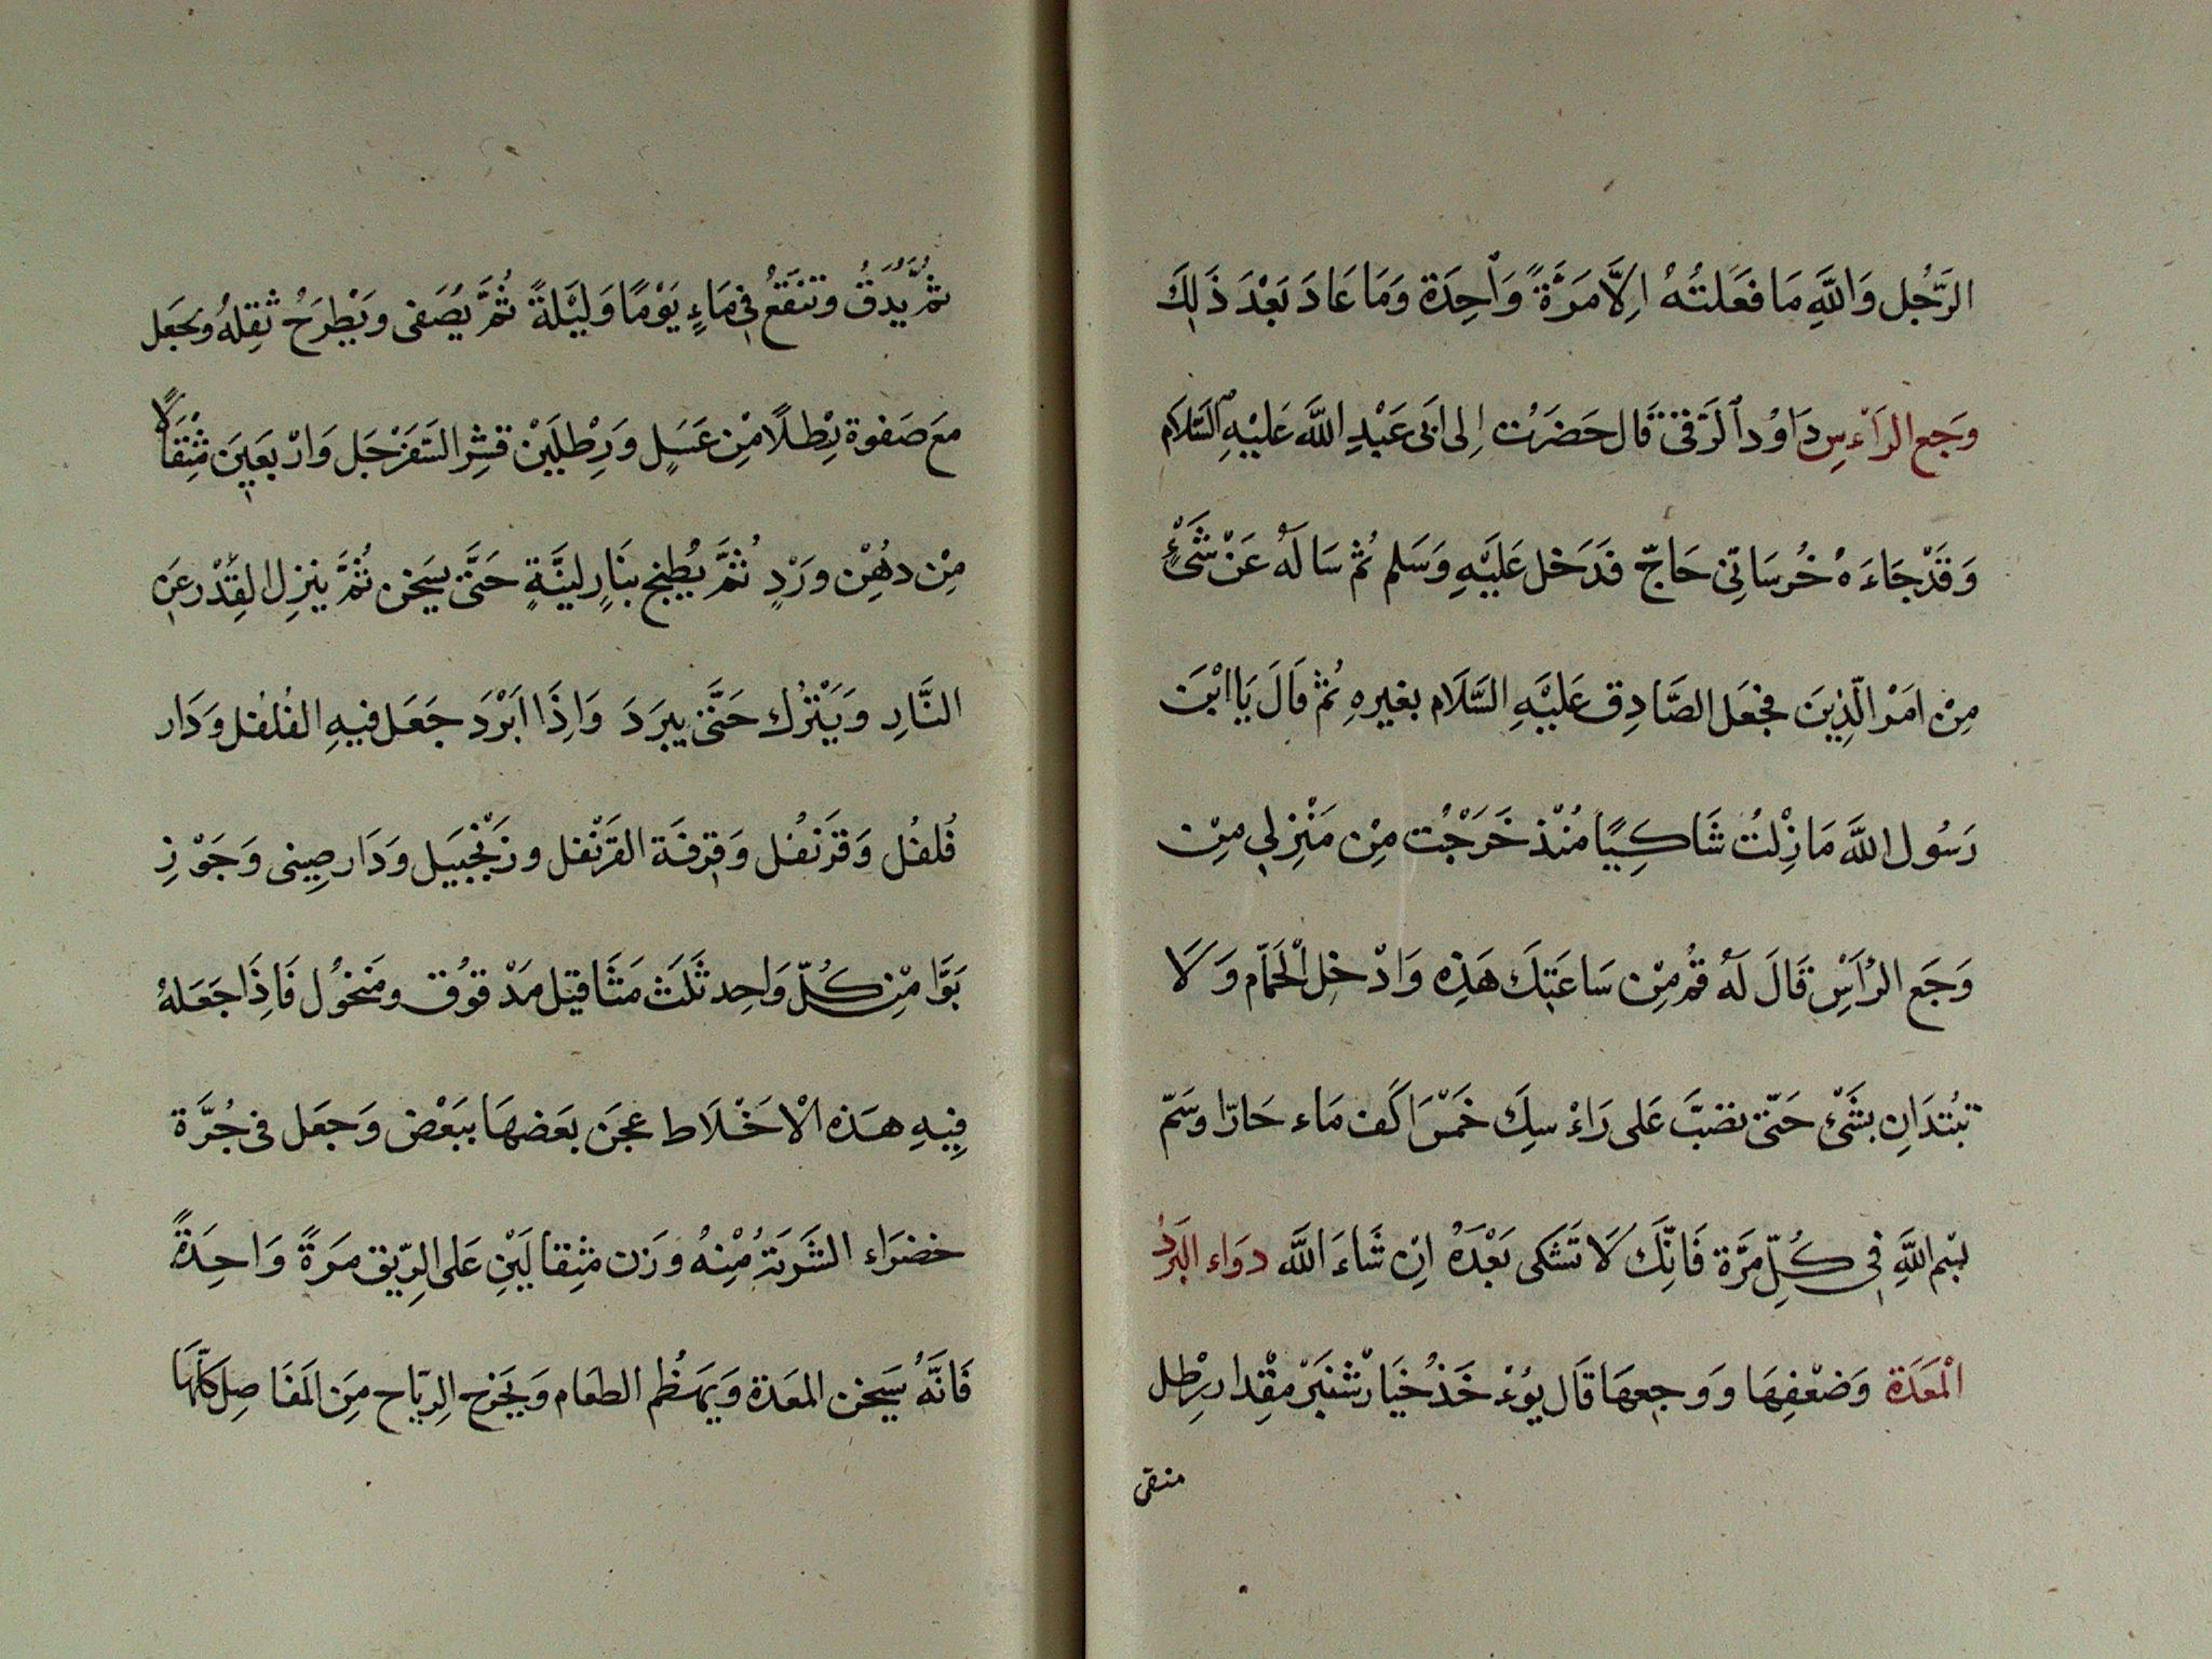 الرَّجُل وَاللَّهِ مَا فَعَلتُهُ اِلَّا مَرَّةً وَاْحِدَة وَمَا عَادَ بَعْدَ ذَلِكَ
وَجَع الرَاْءسِ دَاوُد اْلرَقّى قَال حَضَرْت اِلى اَبى عَبْدِ اللَّه عَليْهِ السَّلَام
وَقَدْ جَاءَ هُ خُرسَانِى حَاجّ فَدَخَل عَلَيْهِ وَسَلم ثُمّ سَالَهُ عَنْ شَىْءٍ
مِنْ اَمْر الّذِينَ فجَعَل الصَّادِق عَليْهِ السَّلَام بغيرهِ ثُمّ قَالَ يَا ابْنَ
رَسُول اللَّه مَا زِلْتُ شَاكِيًا مُنْذ خَرَجْت مِنْ مَنْزِلِي مِنْ
وَجَع الرَاْسِ قَالَ لَهُ قُمْ مِنْ سَاعَتِكَ هَذِه وَادْخِل الْحَمّام وَ لَا
تبْتدَانِ بشَىْءٍ حَتّى تصَبّ عَلى رَاءْ سِكَ خَمْسَ اكَف مَاء حَارّا وسَمّ
بسْم اللَّهِ فِى كُلّ مَرَّة فَانِّكَ لَا تَشكى بَعْدَهُ اِنْ شَاءَ اللَّه دوَاء البَردُ
الْمَعَدَة وَضعْفِهَا وَ وجعهَا قَال يوُءْ خَذُ خيَارْشنبَرْ مقْدار رِطْل
منقى
ثُمَّ يُدَقُ وتنقَعُ فِى مَاءٍ يَوْمًا وَليْلةً ثُمَّ يُصَفى ويَطْرَحُ ثقِلهُ ويجَعَل
معَ صَفوة رِطْلًا مِنْ عَسَلٍ وَرِطْلَيْنْ قشِر السَفَرْجَل وَارْبعَينَ مثْقَالًا
مِنْ دهُنْ ورَدٍ ثمَّ يُطبخ بنَارٍ لينَّةٍ حَتَّى يسَخن ثُمَّ ينزِل القِدْر عَنِ
النَّارِ وَيَتْرُك حَتَّى يبرَدَ وَاِذَا ابْرَدَ جَعَل فيهِ الفُلفُل وَدَار
فُلفُل وَقَرَنفُل وَقِرفَة القَرَنْفل وزَنْجَبيل وَدَار صِينى وَجَوْزِ
بَوَّا مِنْ كُلّ وَاحِد ثَلَثَ مَثَاقيل مَدْقوُق ومَنخوُل فَاذَا جَعَلهُ
فِيهِ هَذه الْاخَلَاط عجَن بَعضهَا ببَعْض وَجعَل فى جُرَّة
خضرَاء الشَربَةُ مُنْهُ وَزن مثِقالَيْنِ عَلى الرِّيق مَرَةً وَاحِدَةً
فَانَّهُ يَسَخن المعَدة وَيهَضُم الطعَام وَيخرَج الرِيَاح مِنَ المَفَاصِل كلّهَا